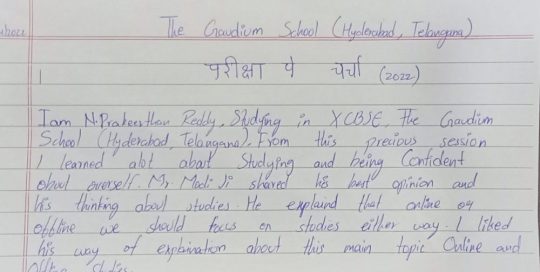 The Gaudium School (Hyderabad, Telangana)
परीक्षा पे चर्चा (2022)
I am N. Prakeerthan Reddy, Studying in X CBSE, The Gaudium
School (Hyderabad, Telangana). From this precious session
I learned alot about Studying and being Confident
about overself. Mr Modi Ji shared his best opinion and
his thinking about studies. He explaind that online or
offline we should focus on studies either way. I liked
his way of explaination about this main topic Online and